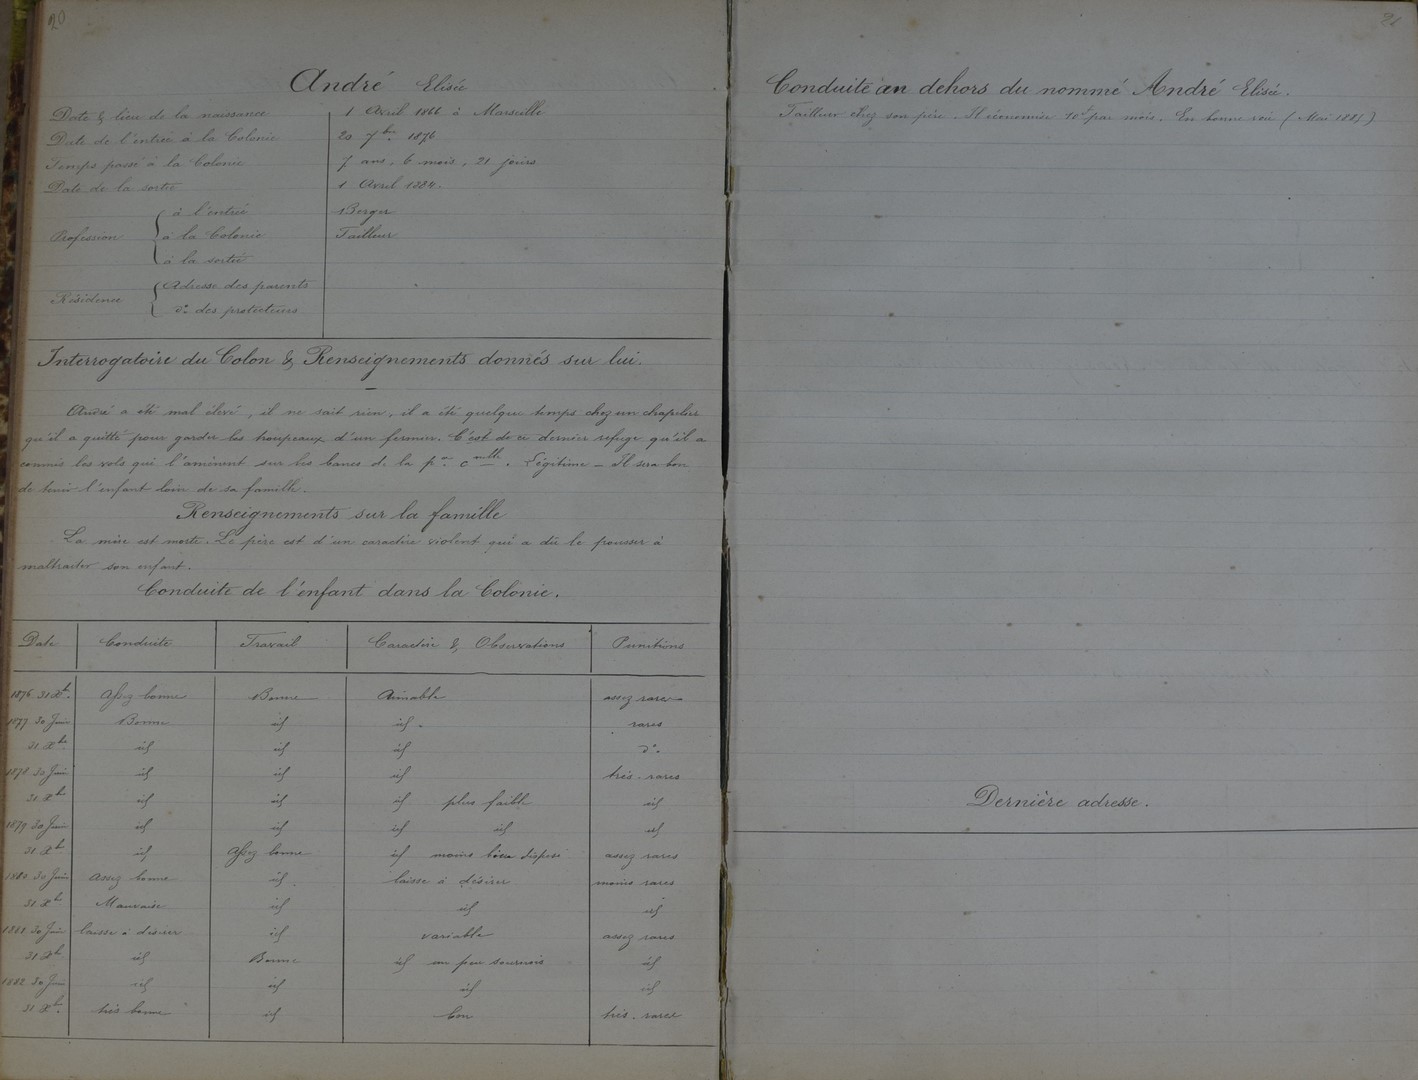 20
André Elisée
Date & lieu de la naissance 1 Avril 1866 à Marseille
Date de l'entrée à la Colonie 20 7bre 1876
Temps passé à la Colonie 7 ans, 6 mois, 21 jours
Date de la sortie 1 Avril 1884.
Profession à l'entrée Berger
à la Colonie Tailleur
à la sortie
Résidence Adresse des parents
do des protecteurs
Interrogatoire du Colon & Renseignements donnés sur lui.
André a été mal élevé, il ne sait rien, il a été quelque temps chez un chapelier
qu'il a quitté pour garder les troupeaux d'un fermier. C'est de ce dernier refuge qu'il a
commis les vols qui l'amènent sur les bancs de la pon cnelle. Légitime – Il sera bon
de tenir l'enfant loin de sa famille.
Renseignements sur la famille
La mère est morte. Le père est d'un caractère violent qui a dû le pousser à
maltraiter son enfant.
Conduite de l'enfant dans la Colonie.
Date Conduite Travail Caractère & Observations Punitions
1876 31 Xbre Assez bonne Bonne Aimable assez rares
1877 30 Juin Bonne id id. rares
31 Xbre id id id do.
1878 30 Juin id id id très-rares
31 Xbre id id id plus faible id
1879 30 Juin id id id id id
31 Xbre id Assez bonne id moins bien disposé assez rares
1880 30 Juin Assez bonne id. laisse à désirer moins rares
31 Xbre Mauvaise id id id
1881 30 Juin laisse à désirer id variable assez rares
31 Xbre id Bonne id un peu sournois id
1882 30 Juin id id id id
31 Xbre très bonne id bon très-rares
21
Conduite en dehors du nommé André Elisée.
Tailleur chez son père. Il économise 10f par mois. En bonne voie (Mai 1885)
Dernière adresse.